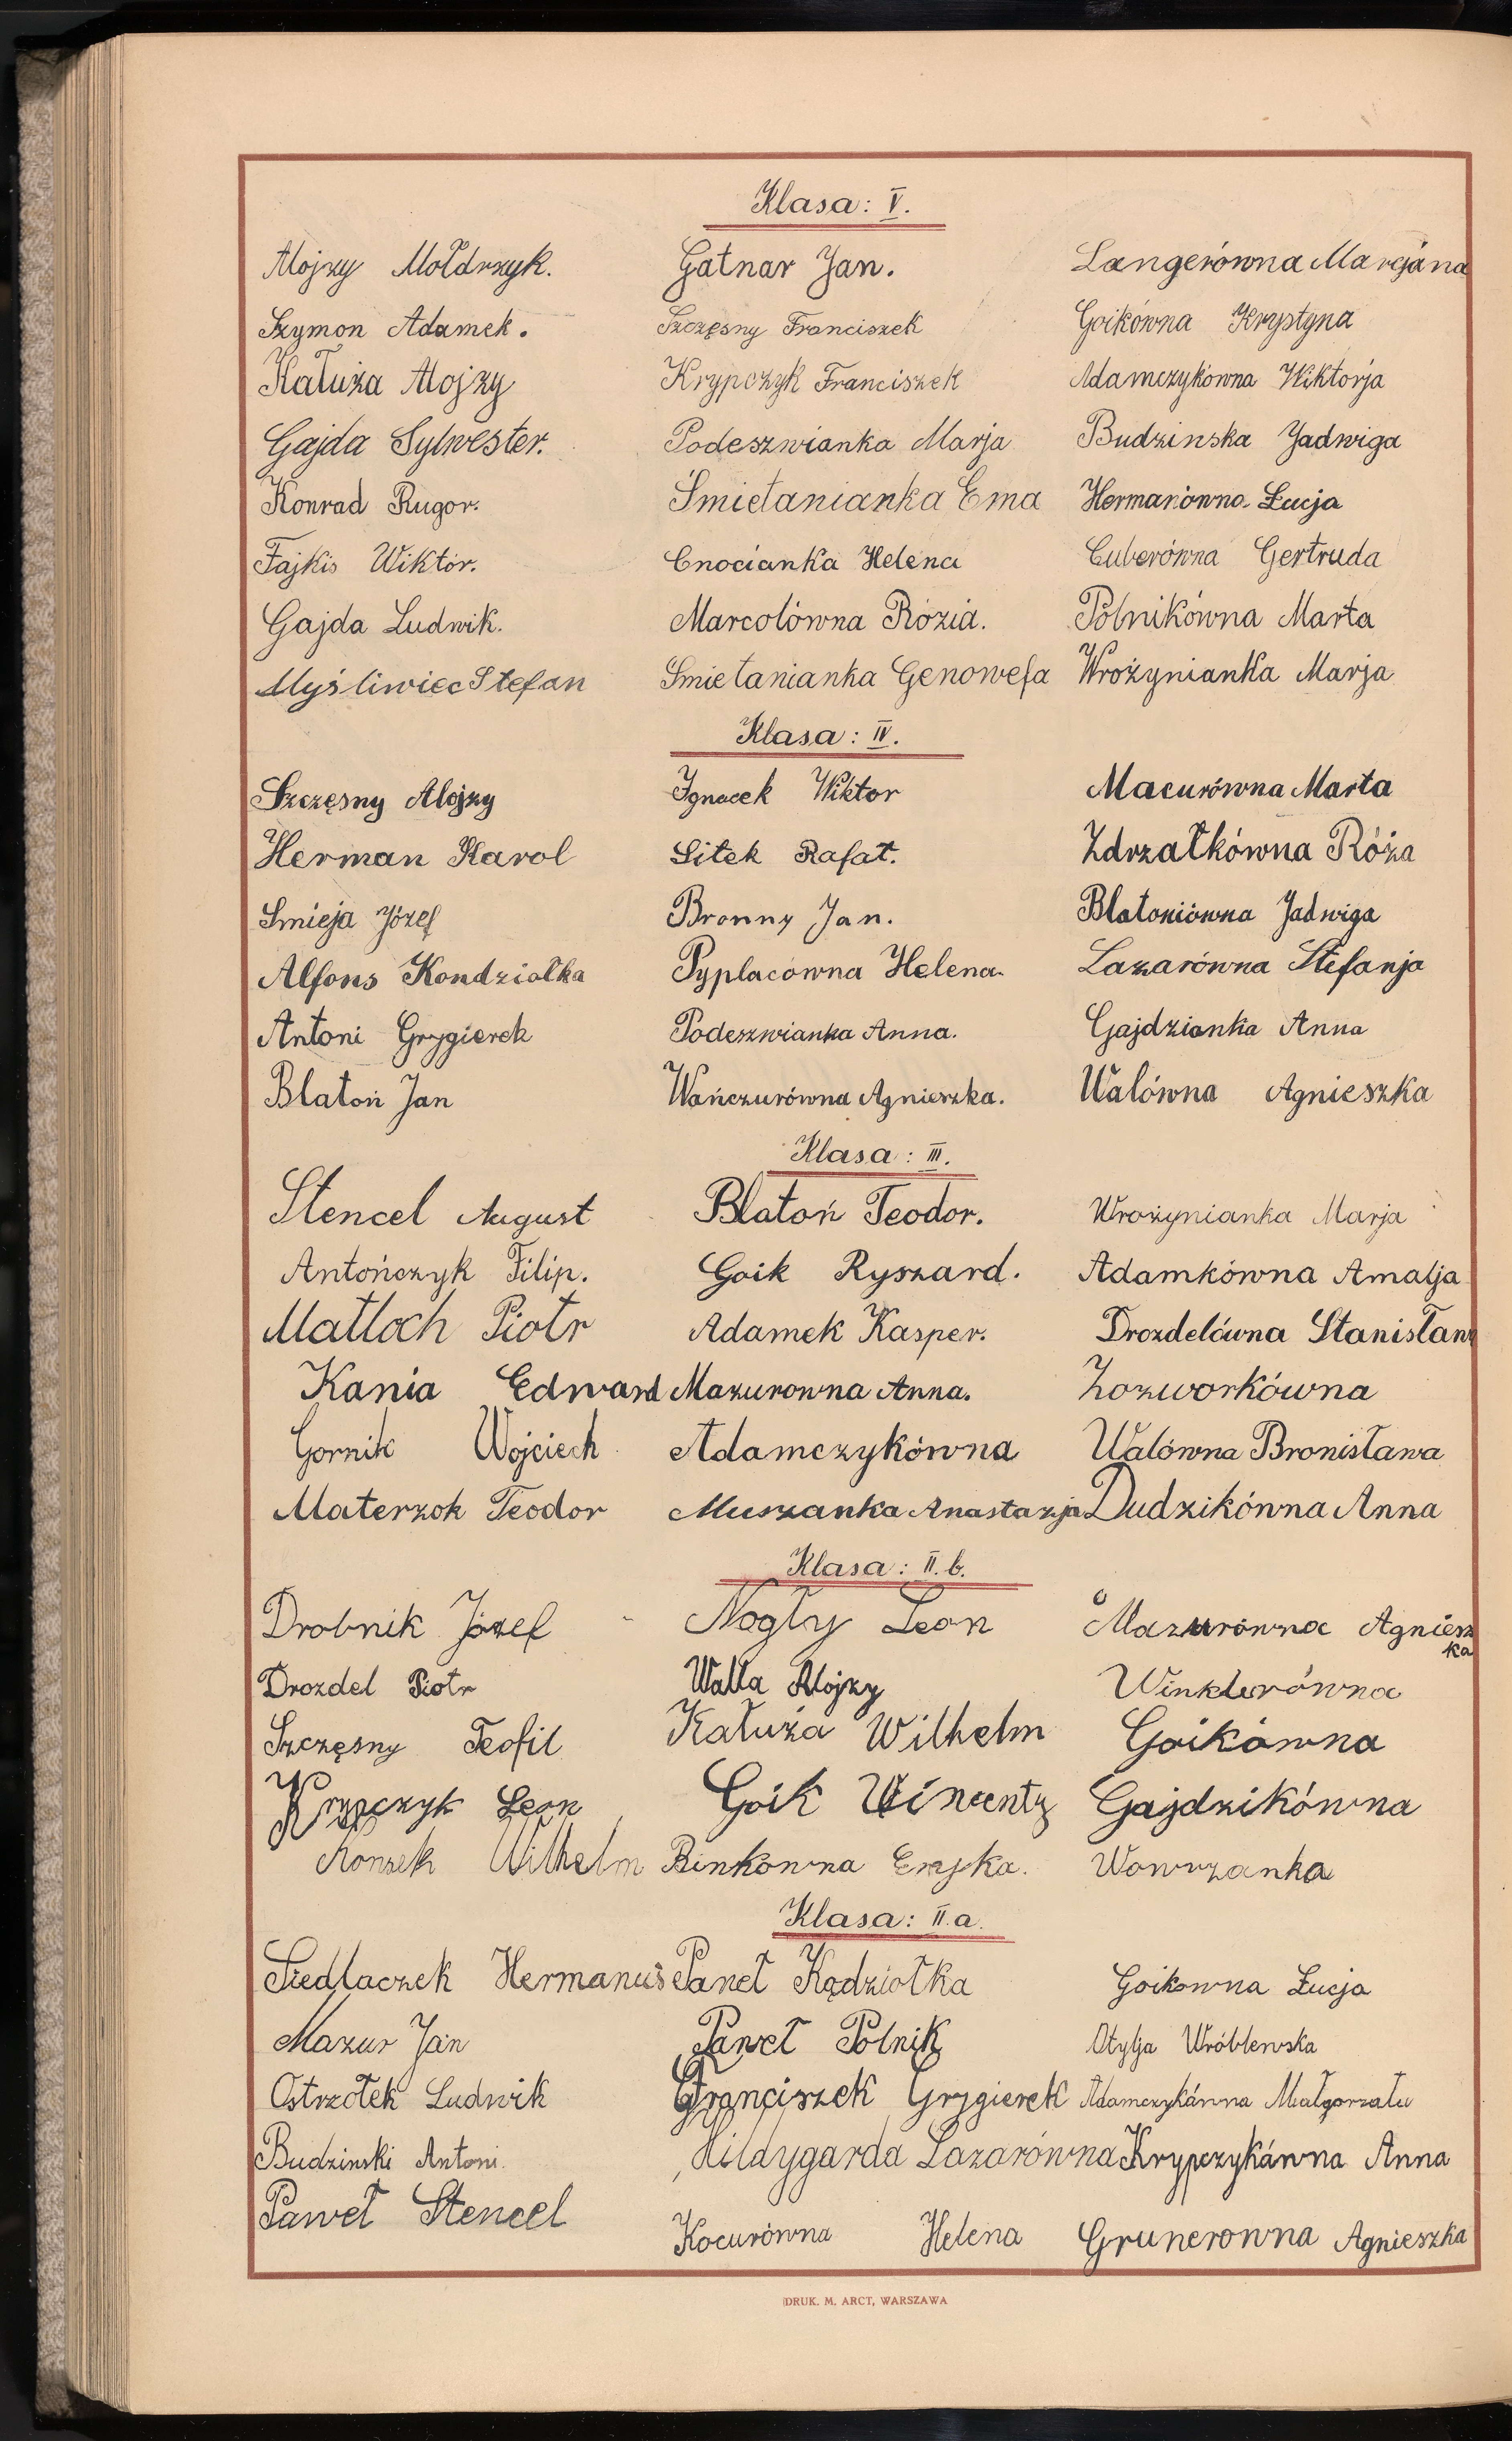 Klasa: V.
Alojzy Mołdrzyk. Gatnar Jan. Langerówna Marcjana
Szymon Adamek. Szczęsny Franciszek Goikówna Krystyna
Kałuża Alojzy Krypczyk Franciszek Adamczykówna Wiktorja
Gajda Sylwester. Podeszwianka Marja Budzinska Jadwiga
Konrad Rugor. Śmietanianka Ema Hermanówna Łucja
Fajkis Wiktor. Cnocianka Helena Cuberówna Gertruda
Gajda Ludwik. Marcolówna Rózia. Polnikówna Marta
Myśliwiec Stefan Smietanianka Genowefa Wrożynianka Marja
Klasa: IV.
Szczęsny Alojzy Ignacek Wiktor Macurówna Marta
Herman Karol Sitek Rafał. Zdrzałkówna Róża
Smieja Józef Bronny Jan. Blatoniówna Jadwiga
Alfons Kondziołka Pyplacówna Helena. Lazarówna Stefanja
Antoni Grygierek Podeszwianka Anna. Gajdzianka Anna
Blatoń Jan Wańczurówna Agnieszka. Walówna Agnieszka
Klasa: III.
Stencel August Blatoń Teodor. Wrożynianka Marja
Antończyk Filip. Goik Ryszard. Adamkówna Amalja
Matloch Piotr Adamek Kasper. Drozdelówna Stanisław
Kania Edward Mazurowna Anna. Zozworkówna
Gornik Wojciech Adamczykówna Walówna Bronisława
Materzok Teodor Muszanka Anastazja Dudzikówna Anna
Klasa: II.b.
Drobnik Józef Nogły Leon Mazurówna Agniesz
ka
Drozdel Piotr Walla Alojzy Winklerówna
Szczęsny Teofil Kałuża Wilhelm Goikówna
Krypczyk Leon Goik Wincenty Gajdzikówna
Konsek Wilhelm Binkówna Eryka. Wowrzanka
Klasa: II.a.
Siedlaczek Hermanus Paweł Kądziołka Goikowna Łucja
Mazur Jan Paweł Polnik Otylja Wróblewska
Ostrzołek Ludwik Franciszek Grygierek Adamczykówna Małgorzata
Budzinski Antoni. Hildygarda Lazarówna Krypczykówna Anna
Paweł Stencel
Kocurówna Helena Grunerowna Agnieszka
DRUK. M. ARCT, WARSZAWA